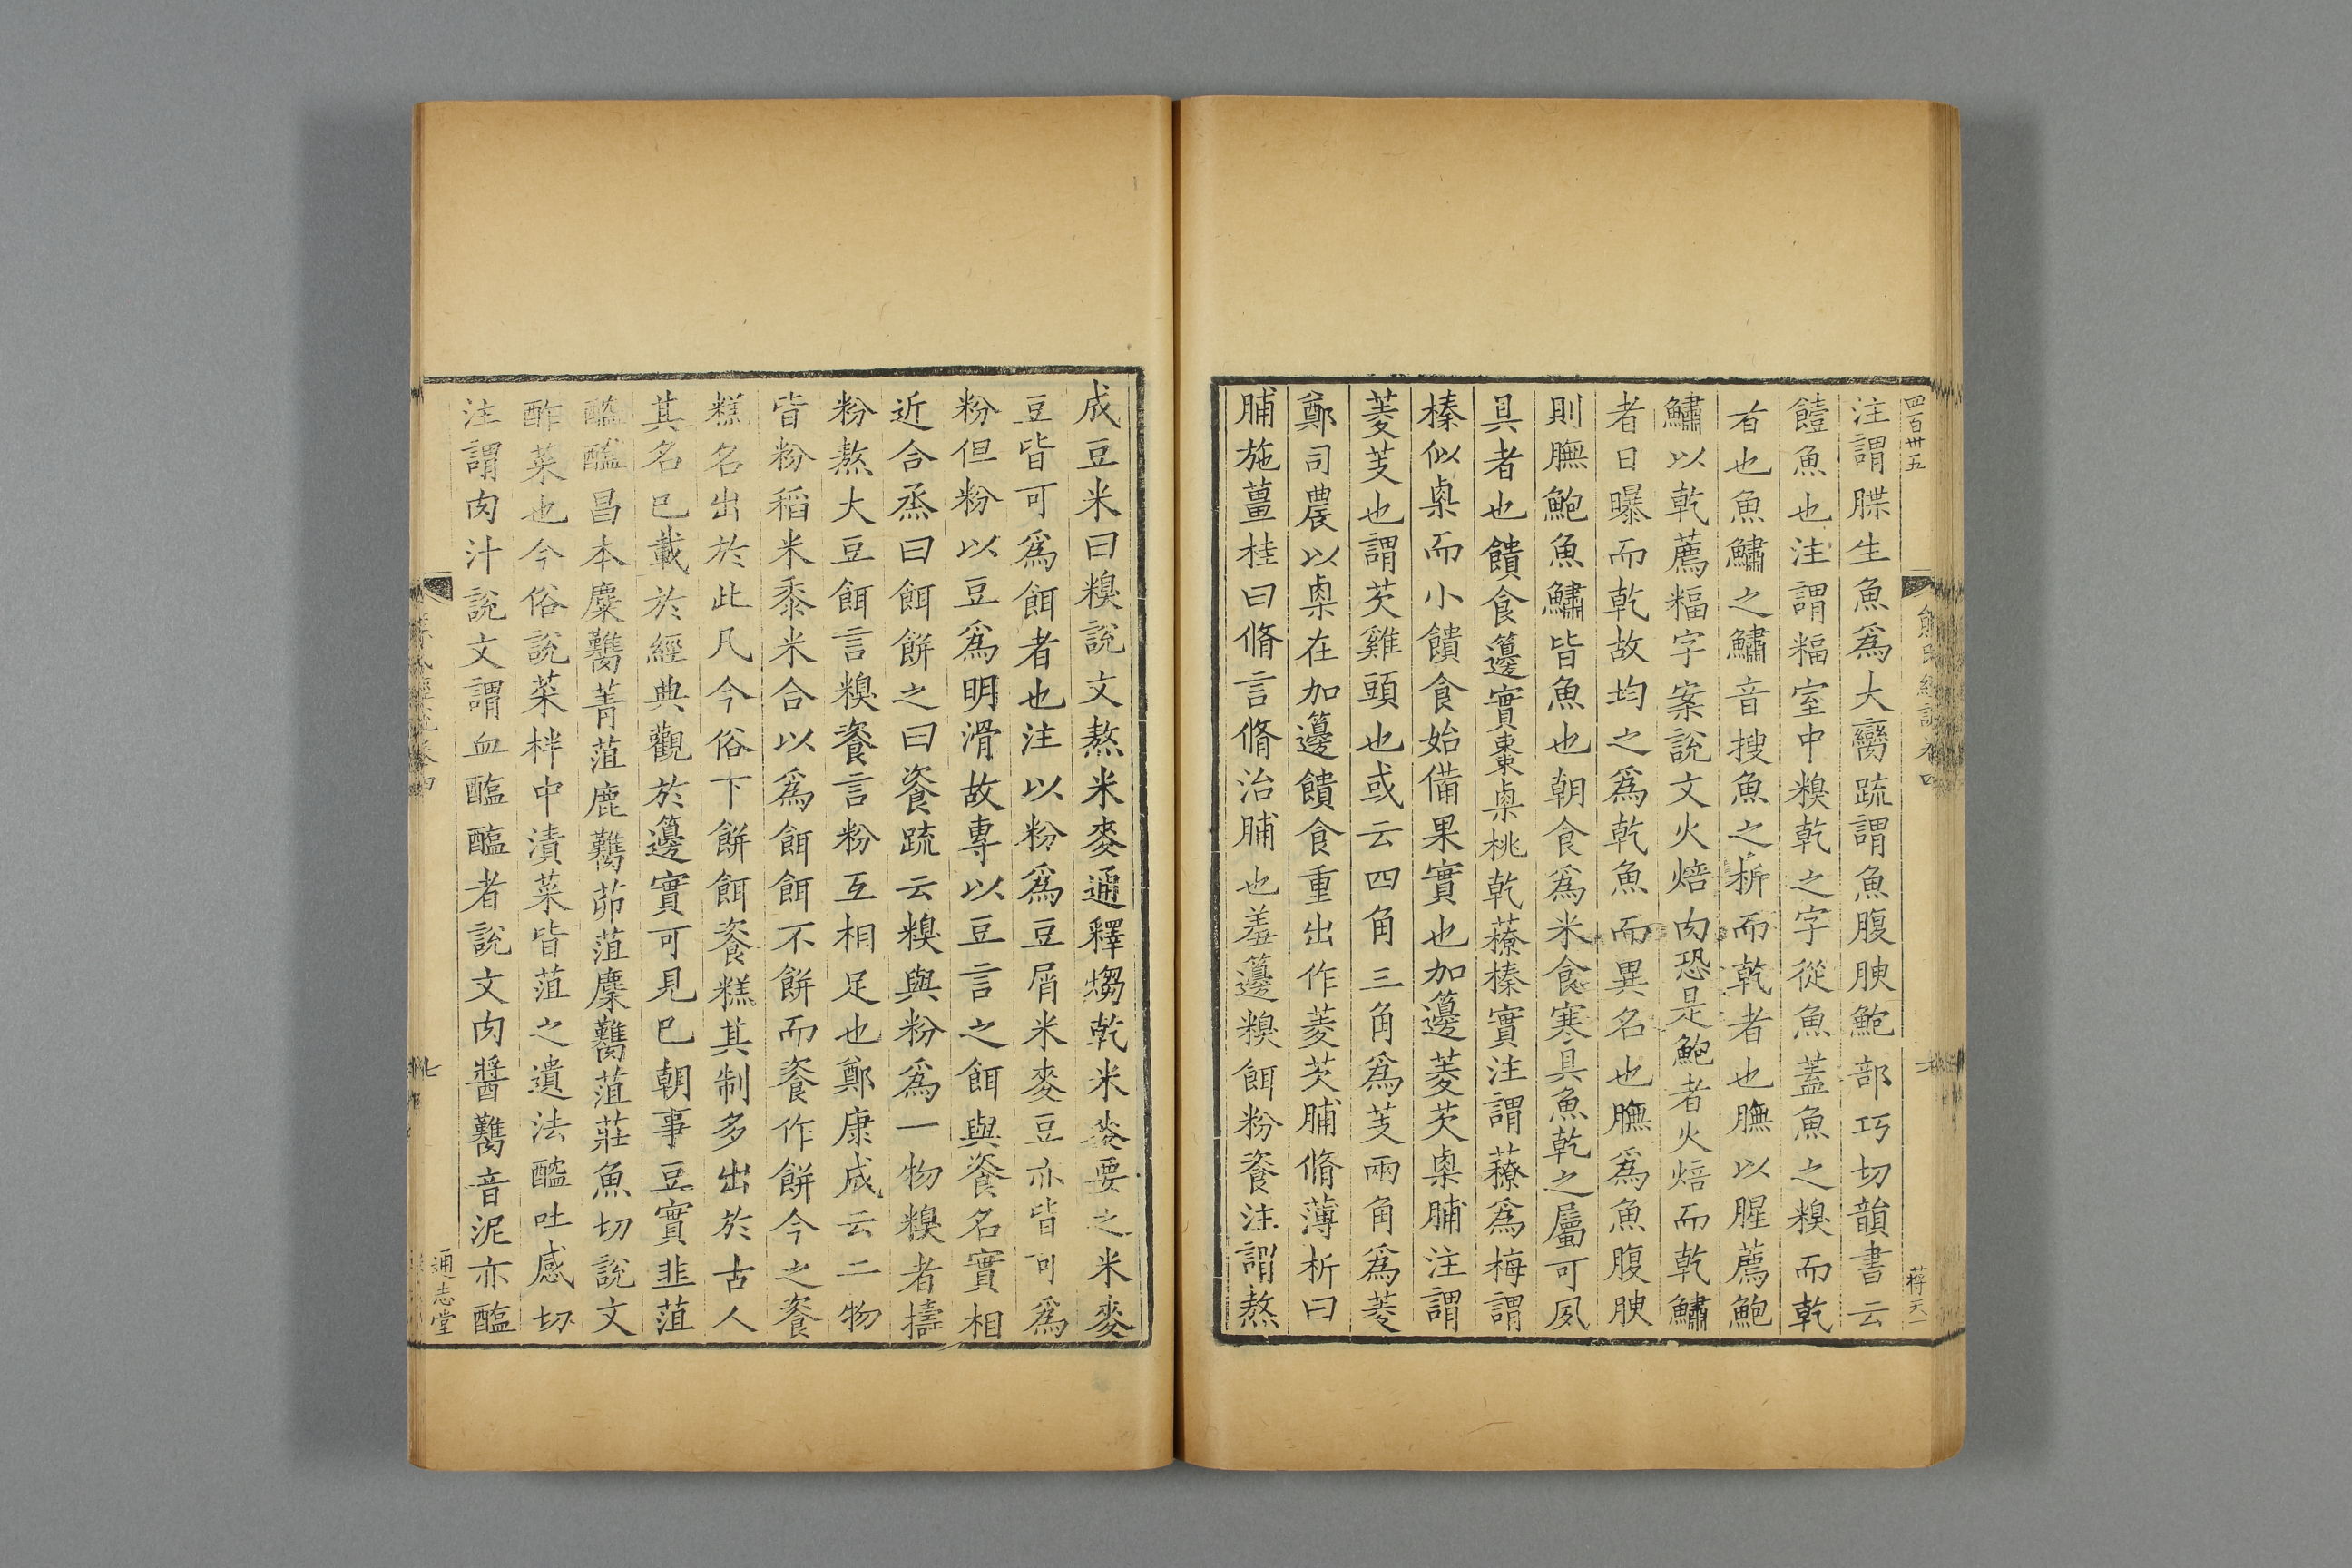 四百卅五
注謂䐑生魚爲大臠䟽謂魚腹腴鮑部巧切韻書云
饐魚也注謂糗室中糗乾之字從魚蓋魚之糗而乾
者也魚鱐之鱐音搜魚之析而乾者也膴以腥薦鮑
鱐以乾薦䊧字案說文火焙肉恐是鮑者火焙而乾鱐
者日曝而乾故均之爲乾魚而異名也膴爲魚腹腴
則膴鮑魚鱐皆魚也朝食爲米食寒具魚乾之屬可夙
具者也饋食籩實棗㮚桃乾䕩榛實注謂䕩爲梅謂
榛似㮚而小饋食始備果實也加籩菱芡㮚脯注謂
菱芰也謂芡雞頭也或云四角三角爲芰兩角爲菱
鄭司農以㮚在加籩饋食重出作菱芡脯脩薄析曰
脯施薑桂曰脩言脩治脯也羞籩糗餌粉餈注謂熬
蔣天一
成豆米曰糗說文熬米麥通釋㷅乾米麥要之米麥
豆皆可爲餌者也注以粉爲豆屑米麥豆亦皆可爲
粉但粉以豆爲明滑故專以豆言之餌與餈名實相
近合烝曰餌餅之曰餈䟽云糗與粉爲一物糗者擣
粉熬大豆餌言糗餈言粉互相足也鄭康成云二物
皆粉稻米黍米合以爲餌餌不餅而餈作餅今之餈
糕名出於此凡今俗下餅餌餈糕其制多出於古人
其名已載於經典觀於籩實可見已朝事豆實韭菹
醓醢昌本麋臡菁菹鹿臡茆菹麋臡菹莊魚切說文
酢菜也今俗說菜柈中漬菜皆菹之遺法醓吐感切
注謂肉汁說文謂血醢醢者說文肉醬臡音泥亦醢
七
通志堂